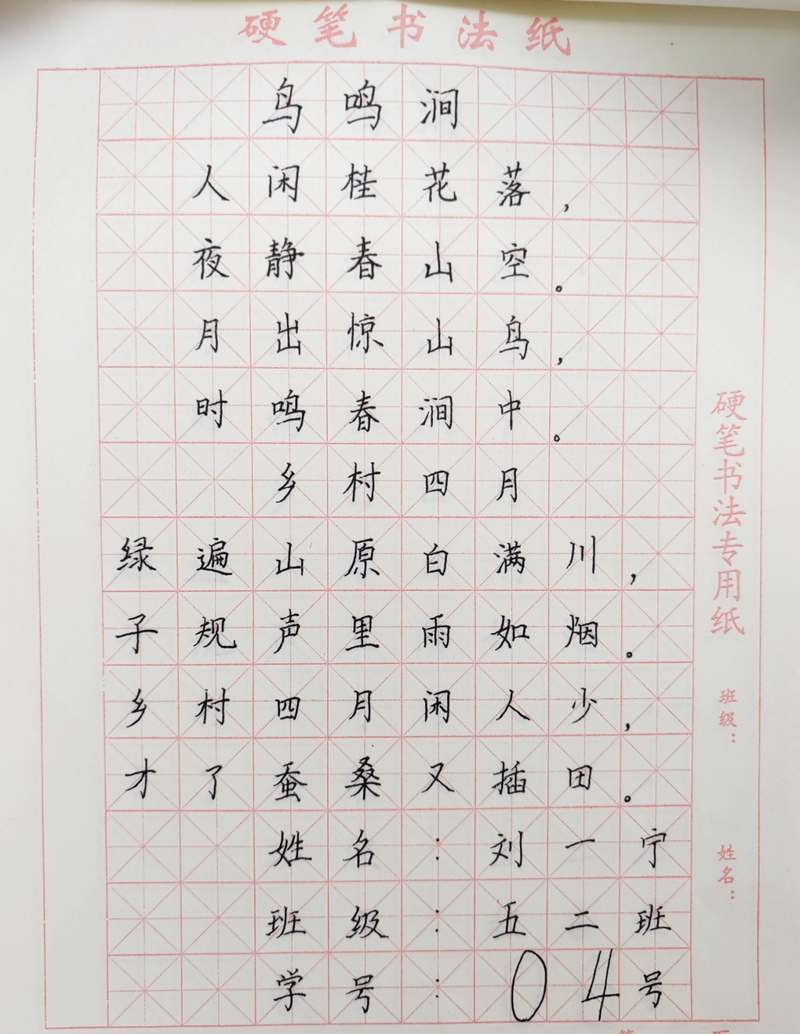 硬笔书法纸
鸟鸣涧
人闲桂花落，
夜静春山空。
月出惊山鸟，
时鸣春涧中。
乡村四月
绿遍山原白满川，
子规声里雨如烟。
乡村四月闲人少，
才了蚕桑又插田。
姓名：刘一宁
班级：五二班
学号：04号
硬笔书法专用纸
班级：
姓名：